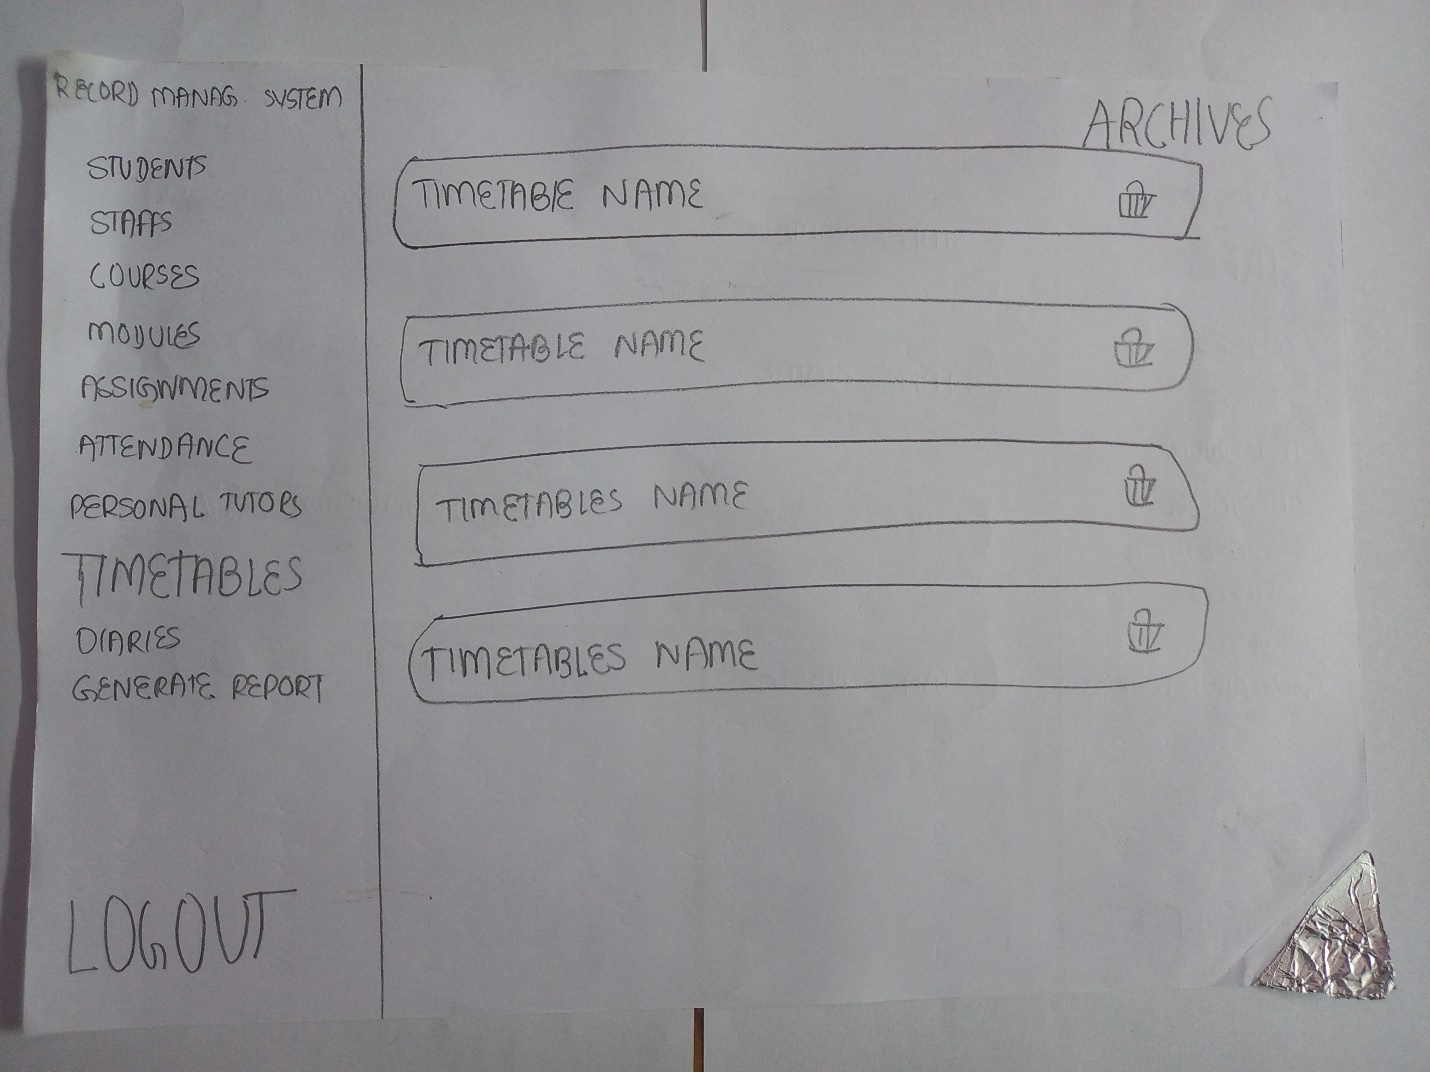 RECORD MANAG. SYSTEM
STUDENTS
STAFFS
COURSES
MODULES
ASSIGNMENTS
ATTENDANCE
PERSONAL TUTORS
TIMETABLES
DIARIES
GENERATE REPORT
LOGOUT
ARCHIVES
TIMETABLE NAME
TIMETABLE NAME
TIMETABLES NAME
TIMETABLES NAME